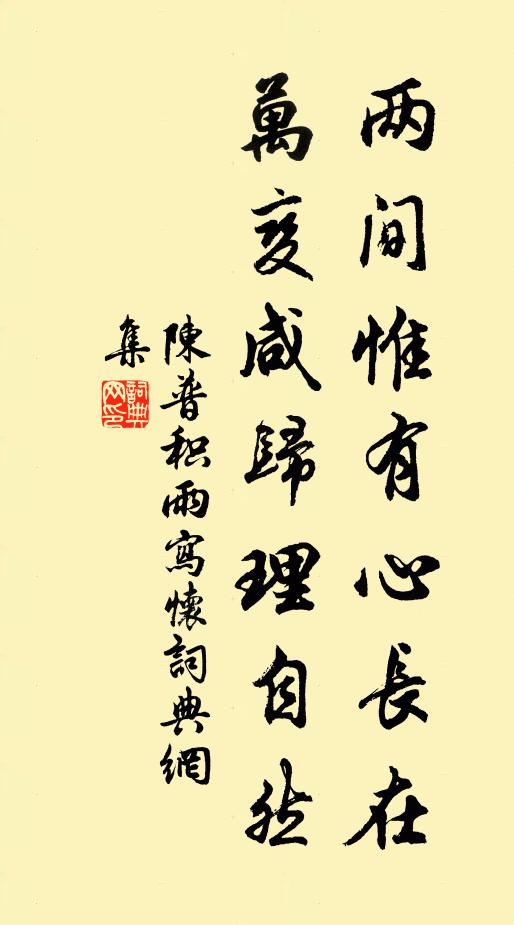 两间惟有心长在
萬变咸歸理自然
陳普积雨寫懷詞典網
集
詞典
网印